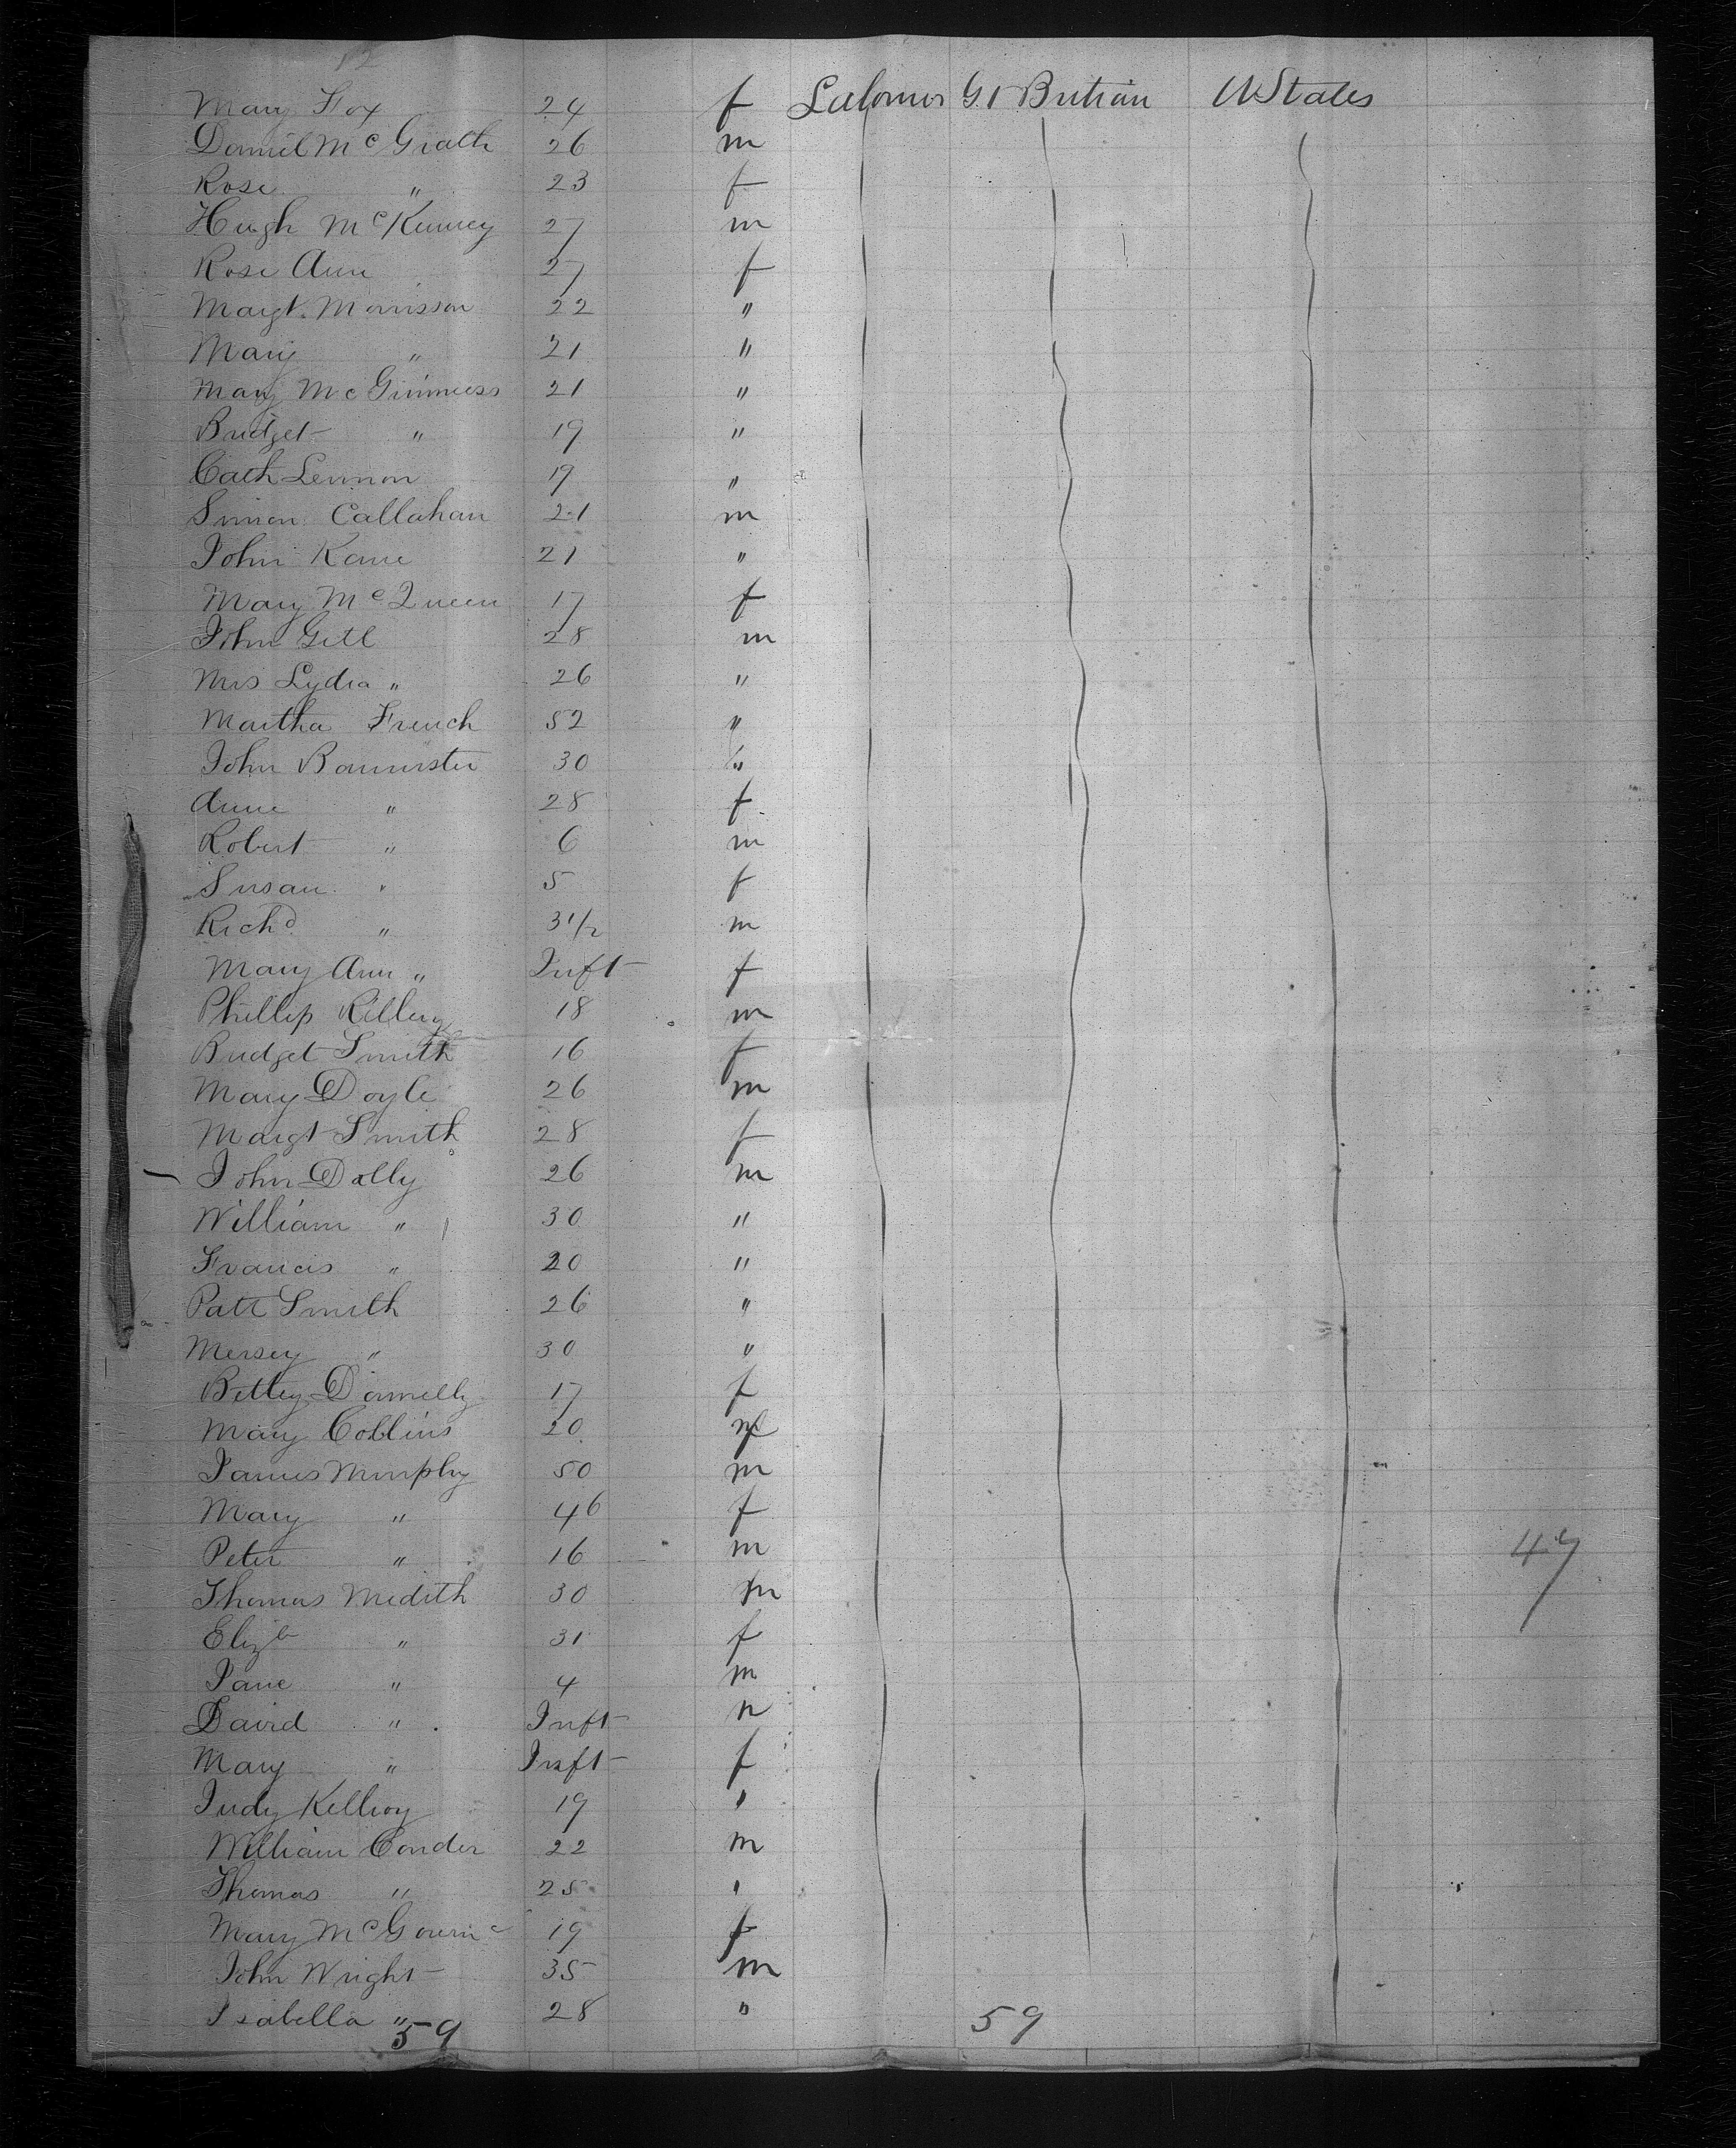 Mary Fox 24 f Labourers Gt Britian U States
Daniel Mc Grath 26 m
Rose " 23 f
Hugh McKinney 27 m
Rose Ann 27 f
Margt. Morrisson 22 "
Mary " 21 "
Mary McGinness 21 "
Bridget " 19 "
Cath Lennon 19 "
Simon Callahan 21 m
John Kane 21 "
Mary McQueen 17 f
John Gill 28 m
Mrs Lydia " 26 "
Martha French 52 "
John Bannister 30 "
Anne " 28 f
Robert " 6 m
Susan " 5 f
Richd " 3 1/2 m
Mary Ann " Inft f
Phillip Rilley 18 m
Bridget Smith 16 f
Mary Doyle 26 m
Margt Smith 28 f
John Dolly 26 m
William " 30 "
Francis " 20 "
Patt Smith 26 "
Mersey " 30 "
Bettey Donnelly 17 f
Mary Collins 20 f
James Murphy 50 m
Mary " 46 f
Peter " 16 m
Thomas Medith 30 m
Elizb " 31 f
Jane " 4 m
David " Inft m
Mary " Inft f
Judy Kellroy 19 "
William Conder 22 m
Thomas " 25 "
Mary McGovern 19 f
John Wright 35 m
Isabella " 28 "
59 59
47